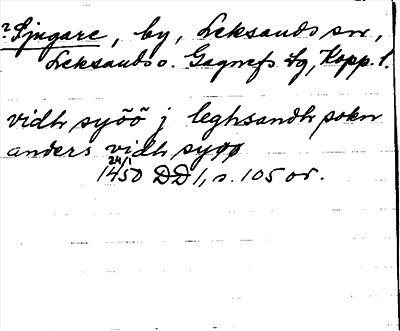 ? Sjugare, by, Leksands sn,
Leksands o. Gagnefs tg, Kopp. l.
vidh syöö j leghsandh sokn
anders vidh syøø
24/1
1450 DD 1, s. 105 or.